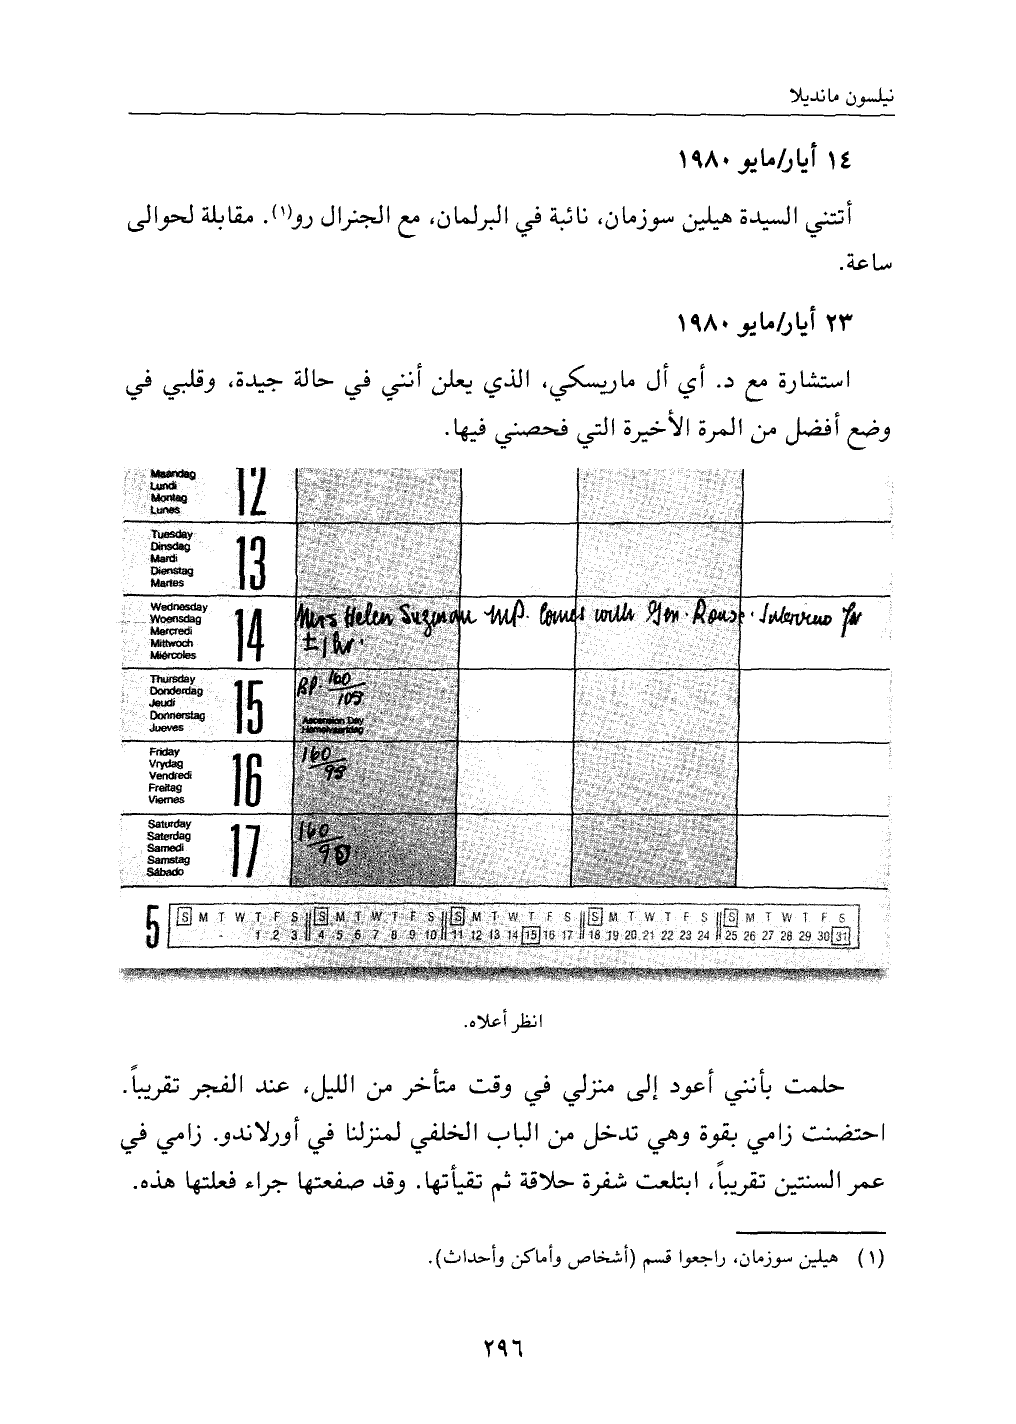 نيلسون مانديلا
١٤ أيار/مايو ١٩٨٠
أتتني السيدة هيلين سوزمان، نائبة في البرلمان، مع الجنرال رو(١). مقابلة لحوالى
ساعة.
٢٣ أيار/مايو ١٩٨٠
استشارة مع د. أي أل ماريسكي، الذي يعلن أنني في حالة جيدة، وقلبي في
وضع أفضل من المرة الأخيرة التي فحصني فيها.
Maandag
Lundi
Montag
Lunes
12
Tuesday
Dinsdag
Mardi
Dienstag
Martes
13
Wednesday
Woensdag
Mercredi
Mittwoch
Miércoles
14
Mrs Helen Suzman MP. Comes with Gen. Rouse. Interview for
± 1 hr.
Thursday
Donderdag
Jeudi
Donnerstag
Jueves
15
BP. 160
105
Ascension Day
Hemelvaartdag
Friday
Vrydag
Vendredi
Freitag
Viernes
16
160
95
Saturday
Saterdag
Samedi
Samstag
Sábado
17
160
90
5
S M T W T F S S M T W T F S S M T W T F S S M T W T F S S M T W T F S
- 1 2 3 4 5 6 7 8 9 10 11 12 13 14 15 16 17 18 19 20 21 22 23 24 25 26 27 28 29 30 31
انظر أعلاه.
حلمت بأنني أعود إلى منزلي في وقت متأخر من الليل، عند الفجر تقريباً.
احتضنت زامي بقوة وهي تدخل من الباب الخلفي لمنزلنا في أورلاندو. زامي في
عمر السنتين تقريباً، ابتلعت شفرة حلاقة ثم تقيأتها. وقد صفعتها جراء فعلتها هذه.
(١) هيلين سوزمان، راجعوا قسم (أشخاص وأماكن وأحداث).
٢٩٦